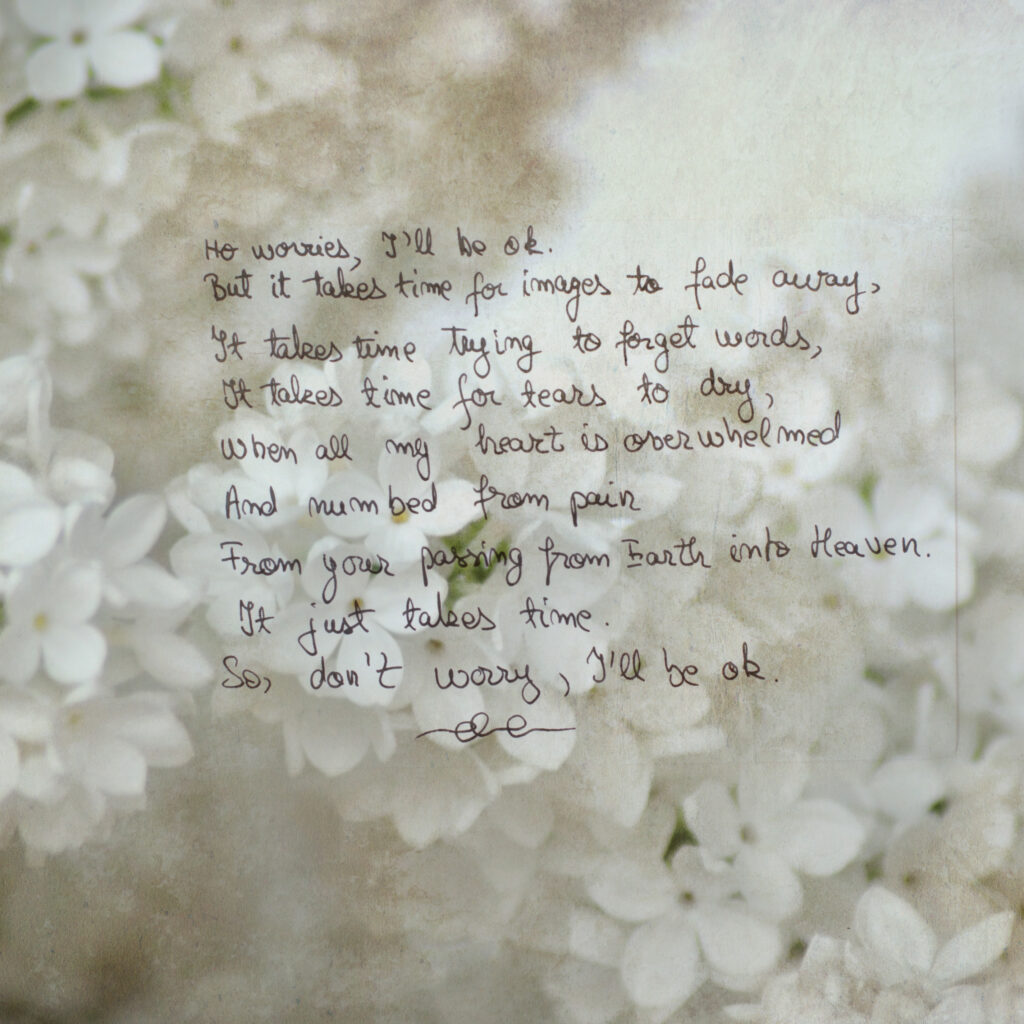 No worries, I'll be ok.
But it takes time for images to fade away,
It takes time trying to forget words,
It takes time for tears to dry,
When all my heart is overwhelmed
And numbed from pain
From your passing from Earth into Heaven.
It just takes time.
So, don't worry, I'll be ok.